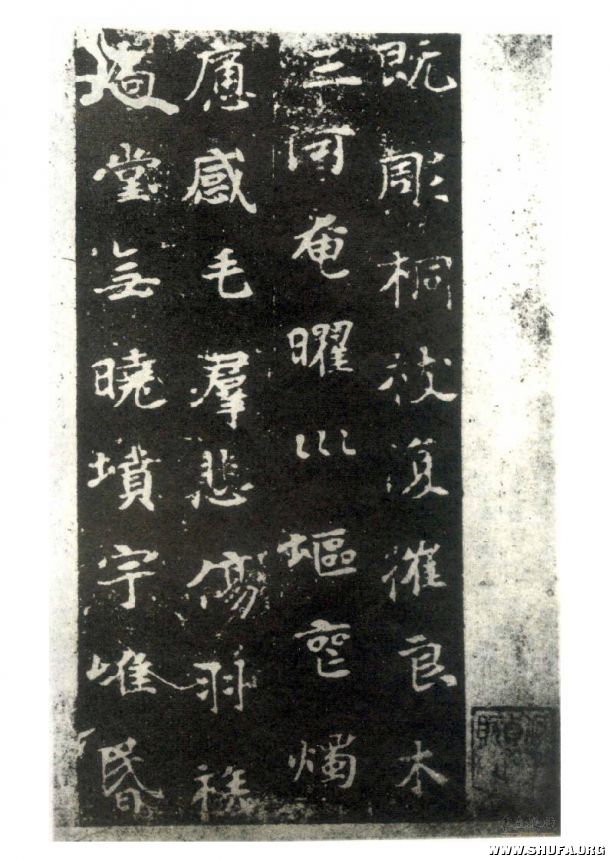 既彫桐枝复摧良木
三河奄曜川塸喪燭
痛感毛羣悲傷羽族
扃堂无曉墳宇唯昏
WWW.SHUFA.ORG